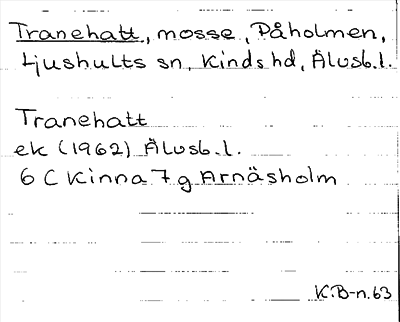 Tranehatt, mosse, Påholmen,
Ljushults sn, Kinds hd, Älvsb. l.
Tranehatt
ek (1962) Älvsb. l.
6 C Kinna 7 g Arnäsholm
K.B-n. 63